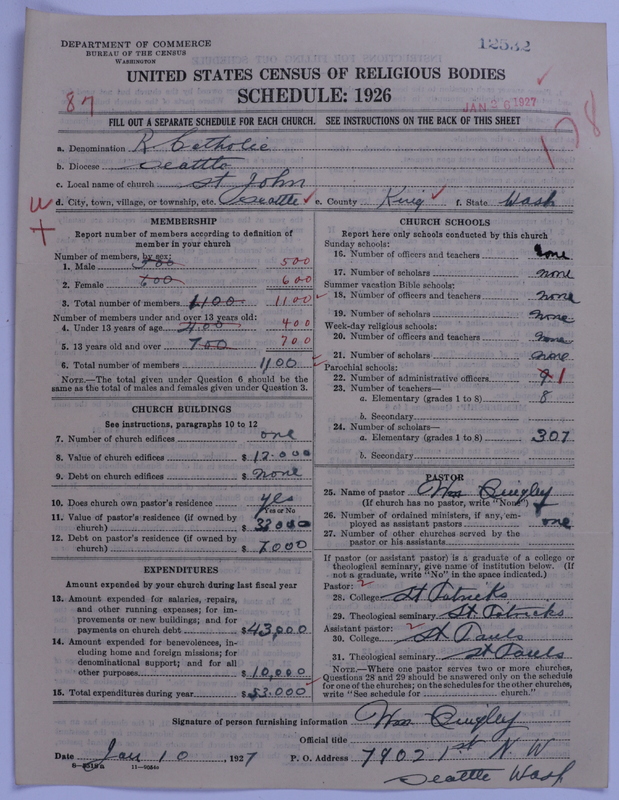 DEPARTMENT OF COMMERCE
BUREAU OF THE CENSUS
WASHINGTON
12532
UNITED STATES CENSUS OF RELIGIOUS BODIES
SCHEDULE: 1926
87
JAN 26 1927
178
FILL OUT A SEPARATE SCHEDULE FOR EACH CHURCH. SEE INSTRUCTIONS ON THE BACK OF THIS SHEET
a. Denomination R Catholic
b. Diocese Seattle
c. Local name of church St John
d. City, town, village, or township, etc. Seattle e. County King f. State Wash
MEMBERSHIP
Report number of members according to definition of member in your church
Number of members, by sex:
1. Male 500 500
2. Female 600 600
3. Total number of members 1100 1100
Number of members under and over 13 years old:
4. Under 13 years of age 400 400
5. 13 years old and over 700 700
6. Total number of members 1100
NOTE.—The total given under Question 6 should be the same as the total of males and females given under Question 3.
CHURCH BUILDINGS
See instructions, paragraphs 10 to 12
7. Number of church edifices one
8. Value of church edifices $ 12.000
9. Debt on church edifices $ none
10. Does church own pastor's residence yes
Yes or No
11. Value of pastor's residence (if owned by church) $ 33000
12. Debt on pastor's residence (if owned by church) $ 7000
EXPENDITURES
Amount expended by your church during last fiscal year
13. Amount expended for salaries, repairs, and other running expenses; for improvements or new buildings; and for payments on church debt $43,000
14. Amount expended for benevolences, including home and foreign missions; for denominational support; and for all other purposes $ 10,000
15. Total expenditures during year $53.000
CHURCH SCHOOLS
Report here only schools conducted by this church
Sunday schools:
16. Number of officers and teachers none
17. Number of scholars none
Summer vacation Bible schools:
18. Number of officers and teachers none
19. Number of scholars none
Week-day religious schools:
20. Number of officers and teachers none
21. Number of scholars none
Parochial schools:
22. Number of administrative officers 9 1
23. Number of teachers—
a. Elementary (grades 1 to 8) 8
b. Secondary
24. Number of scholars—
a. Elementary (grades 1 to 8) 307
b. Secondary
PASTOR
25. Name of pastor Wm Quigley
(If church has no pastor, write "None")
26. Number of ordained ministers, if any, employed as assistant pastors one
27. Number of other churches served by the pastor or his assistants
If pastor (or assistant pastor) is a graduate of a college or theological seminary, give name of institution below. (If not a graduate, write "No" in the space indicated.)
Pastor:
28. College St Patricks
29. Theological seminary St. Patricks
Assistant pastor:
30. College St Pauls
31. Theological seminary St Pauls
NOTE.—Where one pastor serves two or more churches, Questions 28 and 29 should be answered only on the schedule for one of the churches; on the schedules for the other churches, write "See schedule for church."
Signature of person furnishing information Wm Quigley
Official title
Date Jan 10, 1927 P. O. Address 7902 1st N W
Seattle Wash
8—5518a 11—9054a